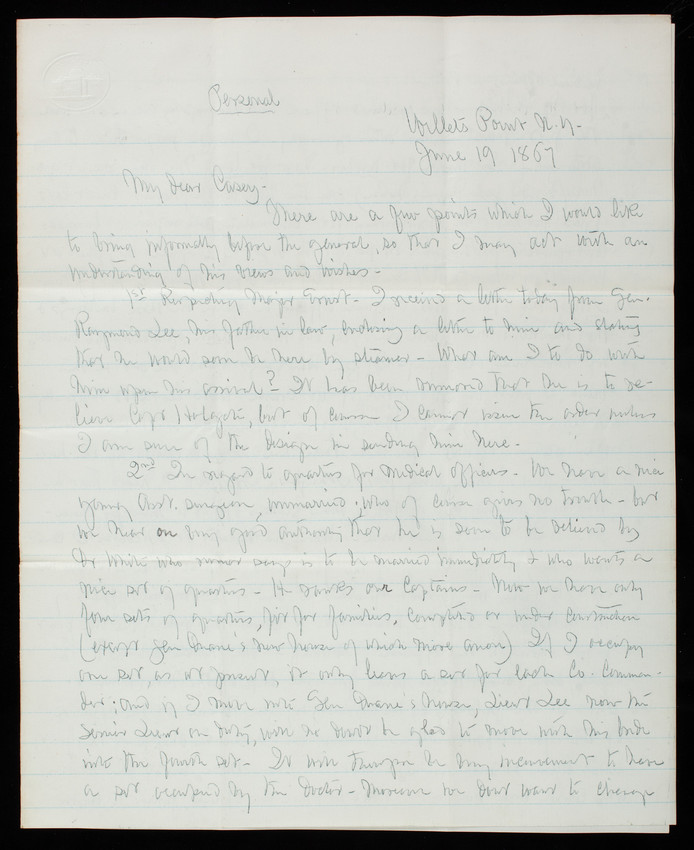 Personal
Willets Point N.Y.
June 19 1867
My dear Casey-
There are a few points which I would like
to bring informally before the general, so that I may act with an
understanding of his views and wishes-
1st Respecting Major Ernst- I received a letter today from Gen.
Raymond Lee, his father in law, enclosing a letter to him and stating
that he would soon be here by steamer- What am I to do with
him upon his arrival?- It has been rumored that he is to re-
lieve Capt Holgate, but of course I cannot issue the order unless
I am sure of the design in sending him here-
2nd In regard to quarters for medical officers- We have a nice
young Asst. surgeon, unmarried; who of course gives no trouble- but
we hear on very good authority that he is soon to be relieved by
Dr White who rumor says is to be married immediately & who wants a
nice set of quarters- He ranks our Captains- Now we have only
four sets of quarters, fit for families, completed or under construction
(except Gen Duane's new house of which more anon) If I occupy
one set, as at present, it only leaves a set for each Co. Comman-
der; and if I move into Gen Duane's house, Lieut Lee now the
senior Lieut on duty, will no doubt be glad to move with his bride
into the fourth set- It will therefore be very inconvenient to have
a set occupied by the doctor- Moreover we don't want to change